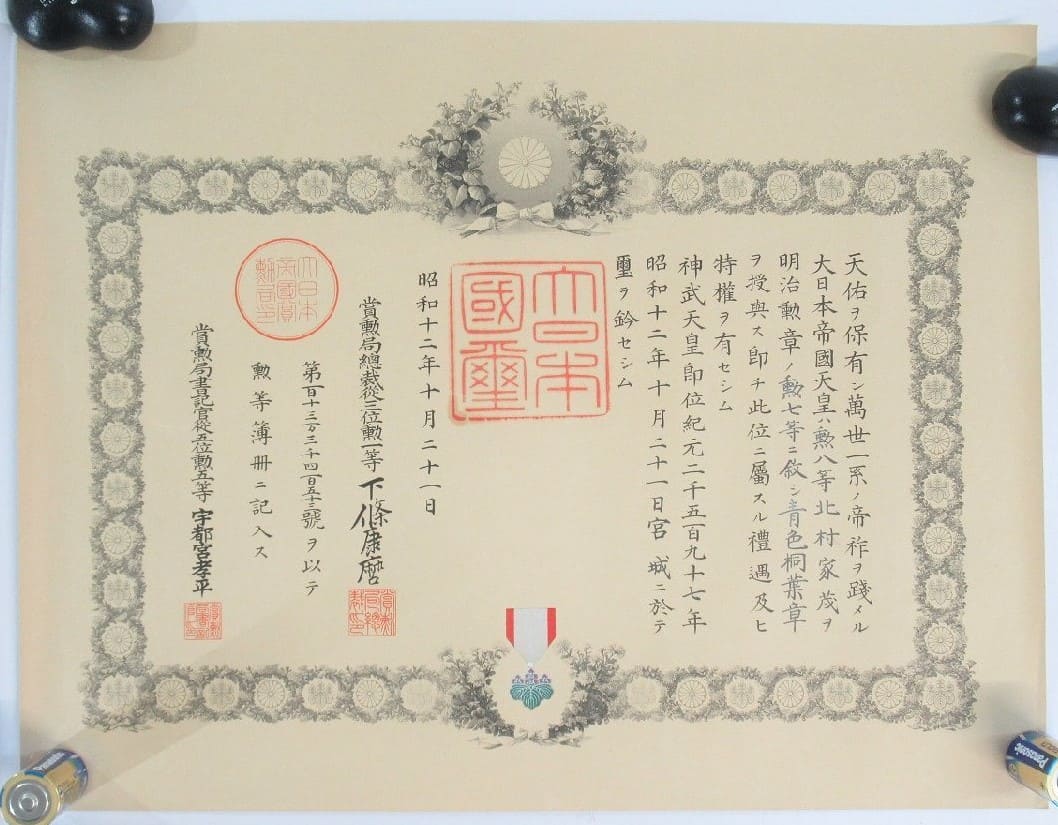 天佑ヲ保有シ萬世一系ノ帝祚ヲ踐メル
大日本帝國天皇ハ勲八等北村家茂ヲ
明治勲章ノ勲七等ニ敘シ青色桐葉章
ヲ授與ス即チ此位ニ屬スル禮遇及ヒ
特權ヲ有セシム
神武天皇即位紀元二千五百九十七年
昭和十二年十月二十一日宮城ニ於テ
璽ヲ鈐セシム
大日本
國璽
昭和十二年十月二十一日
賞勲局總裁從三位勲一等下條康麿
第百十三万三千四百五十三號ヲ以テ
勲等簿册ニ記入ス
大日本
帝國賞
勲局印
賞勲局書記官從五位勲五等宇都宮孝平
Panasonic